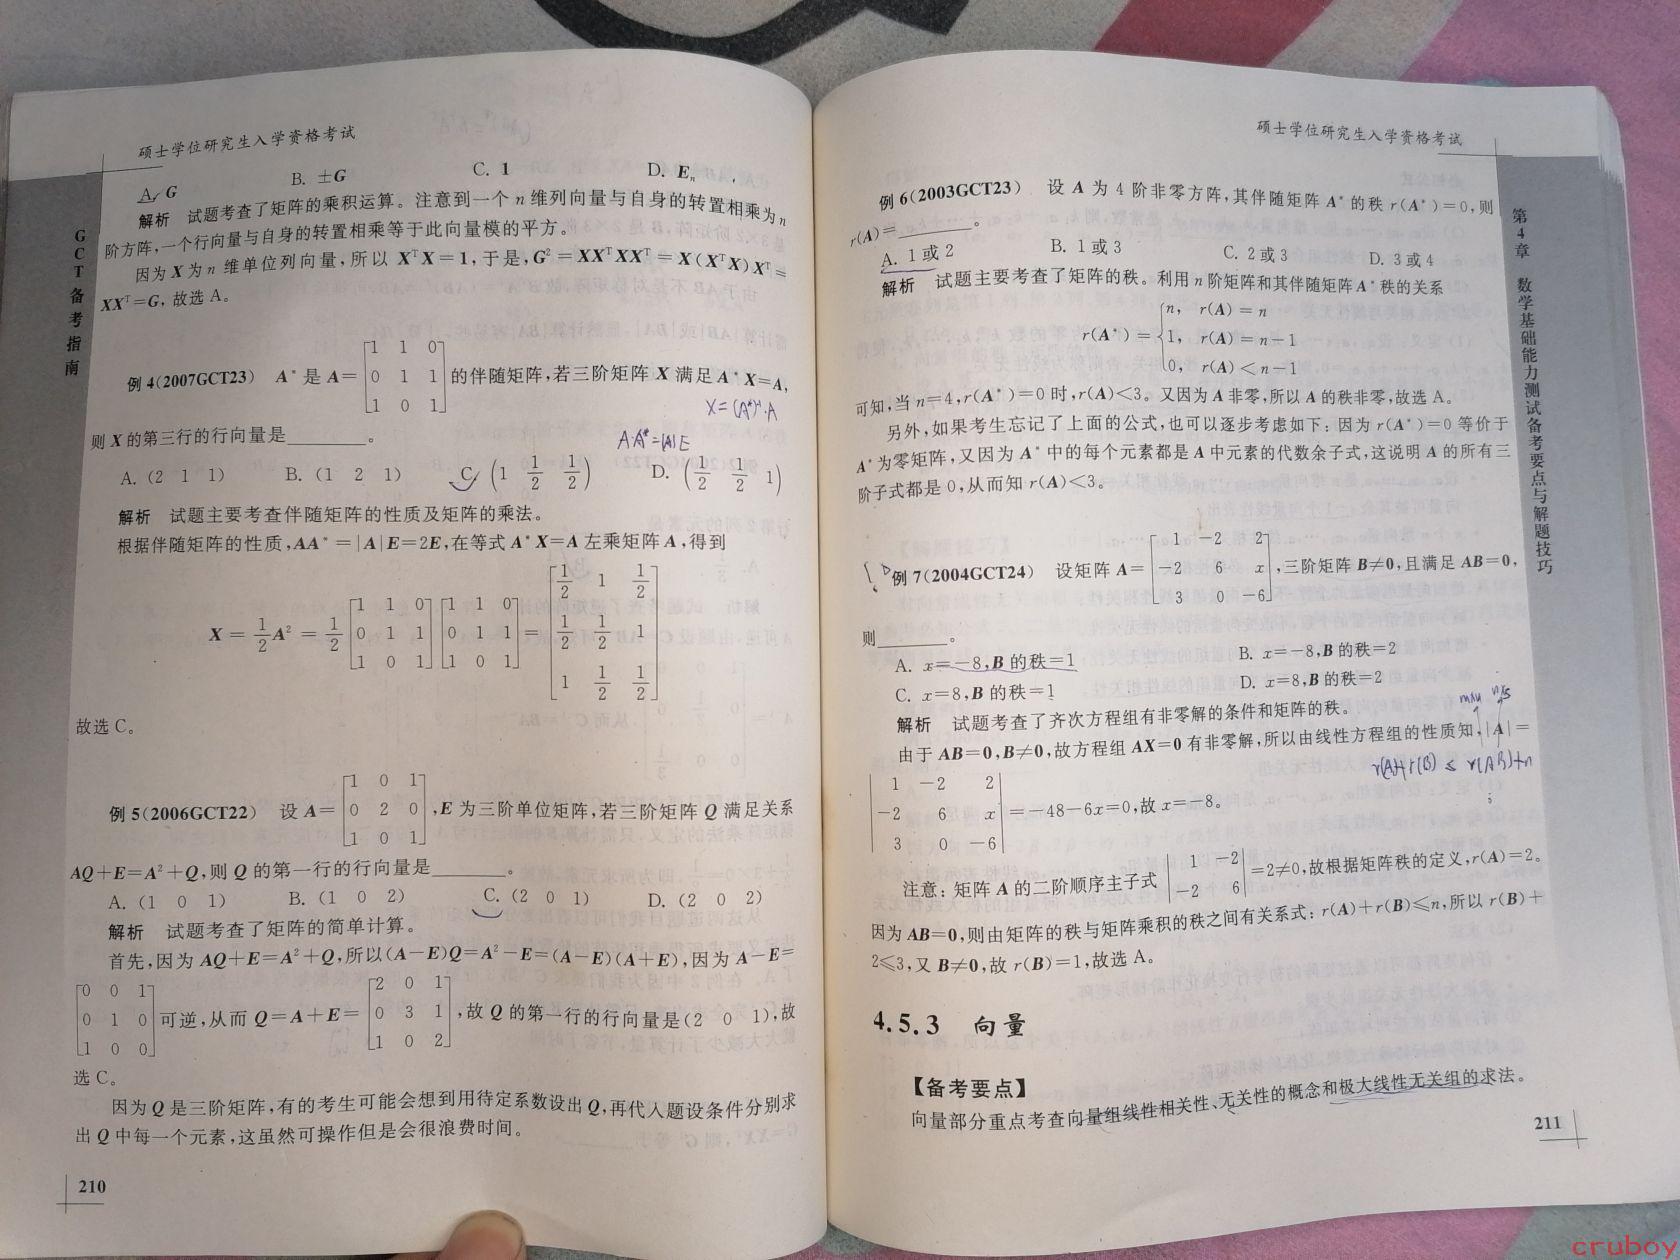 硕士学位研究生入学资格考试
GCT备考指南
A. G B. ±G C. 1 D. Eₙ
解析 试题考查了矩阵的乘积运算。注意到一个 n 维列向量与自身的转置相乘为 n
阶方阵,一个行向量与自身的转置相乘等于此向量模的平方。
因为 X 为 n 维单位列向量,所以 XᵀX=1,于是,G²=XXᵀXXᵀ=X(XᵀX)Xᵀ=
XXᵀ=G,故选 A。
例 4(2007GCT23) A*是 A=[1 1 0; 0 1 1; 1 0 1]的伴随矩阵,若三阶矩阵 X 满足 A*X=A,
X=(A*)⁻¹·A
则 X 的第三行的行向量是________。
AA*=|A|E
A. (2 1 1) B. (1 2 1) C. (1 1/2 1/2) D. (1/2 1/2 1)
解析 试题主要考查伴随矩阵的性质及矩阵的乘法。
根据伴随矩阵的性质,AA*=|A|E=2E,在等式 A*X=A 左乘矩阵 A,得到
X=1/2A²=1/2[1 1 0; 0 1 1; 1 0 1][1 1 0; 0 1 1; 1 0 1]=[1/2 1 1/2; 1/2 1/2 1; 1 1/2 1/2]
故选 C。
例 5(2006GCT22) 设 A=[1 0 1; 0 2 0; 1 0 1],E 为三阶单位矩阵,若三阶矩阵 Q 满足关系
AQ+E=A²+Q,则 Q 的第一行的行向量是________。
A. (1 0 1) B. (1 0 2) C. (2 0 1) D. (2 0 2)
解析 试题考查了矩阵的简单计算。
首先,因为 AQ+E=A²+Q,所以(A-E)Q=A²-E=(A-E)(A+E),因为 A-E=
[0 0 1; 0 1 0; 1 0 0]可逆,从而 Q=A+E=[2 0 1; 0 3 1; 1 0 2],故 Q 的第一行的行向量是(2 0 1),故
选 C。
因为 Q 是三阶矩阵,有的考生可能会想到用待定系数设出 Q,再代入题设条件分别求
出 Q 中每一个元素,这虽然可操作但是会很浪费时间。
210
硕士学位研究生入学资格考试
第4章 数学基础能力测试备考要点与解题技巧
例 6(2003GCT23) 设 A 为 4 阶非零方阵,其伴随矩阵 A*的秩 r(A*)=0,则
r(A)=________。
A. 1或2 B. 1或3 C. 2或3 D. 3或4
解析 试题主要考查了矩阵的秩。利用 n 阶矩阵和其伴随矩阵 A*秩的关系
r(A*)={n, r(A)=n
1, r(A)=n-1
0, r(A)<n-1
可知,当 n=4,r(A*)=0 时,r(A)<3。又因为 A 非零,所以 A 的秩非零,故选 A。
另外,如果考生忘记了上面的公式,也可以逐步考虑如下:因为 r(A*)=0 等价于
A*为零矩阵,又因为 A*中的每个元素都是 A 中元素的代数余子式,这说明 A 的所有三
阶子式都是 0,从而知 r(A)<3。
例 7(2004GCT24) 设矩阵 A=[1 -2 2; -2 6 x; 3 0 -6],三阶矩阵 B≠0,且满足 AB=0,
则________。
A. x=-8,B 的秩=1 B. x=-8,B 的秩=2
C. x=8,B 的秩=1 D. x=8,B 的秩=2
m×n n×s
解析 试题考查了齐次方程组有非零解的条件和矩阵的秩。
由于 AB=0,B≠0,故方程组 AX=0 有非零解,所以由线性方程组的性质知,|A|=
r(A)+r(B)≤r(AB)+n
|1 -2 2; -2 6 x; 3 0 -6|=-48-6x=0,故 x=-8。
注意:矩阵 A 的二阶顺序主子式|1 -2; -2 6|=2≠0,故根据矩阵秩的定义,r(A)=2。
因为 AB=0,则由矩阵的秩与矩阵乘积的秩之间有关系式:r(A)+r(B)≤n,所以 r(B)+
2≤3,又 B≠0,故 r(B)=1,故选 A。
4.5.3 向量
【备考要点】
向量部分重点考查向量组线性相关性、无关性的概念和极大线性无关组的求法。
211
cruboy